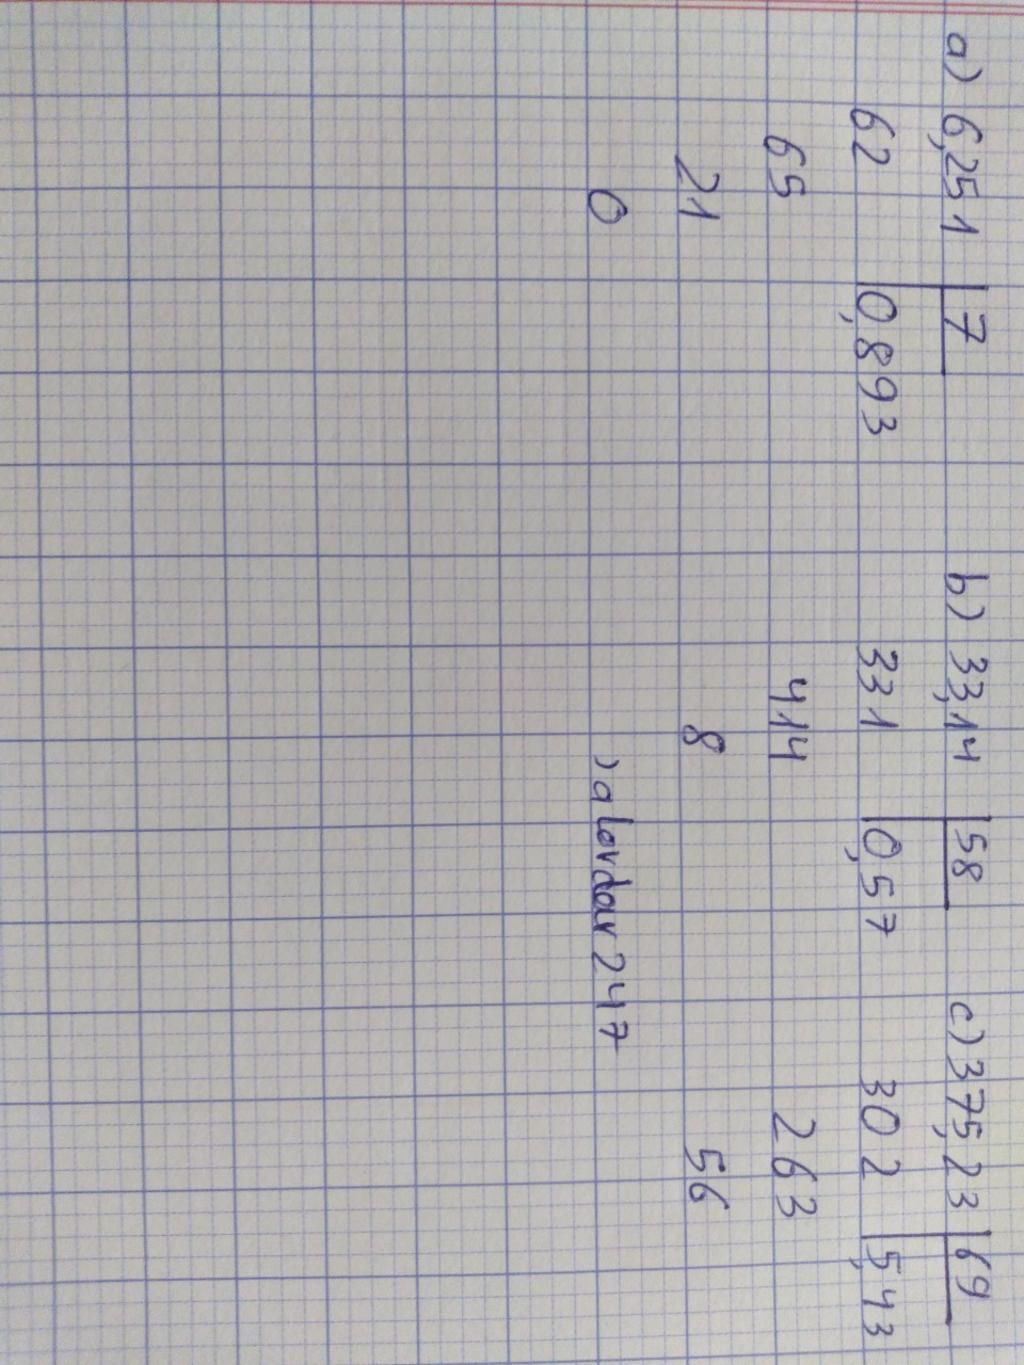 a) 6,251 7 b) 33,14 58 c) 375,23 69
62 0,893 331 0,57 302 5,43
65 414 263
21 8 56
0 )alordar247